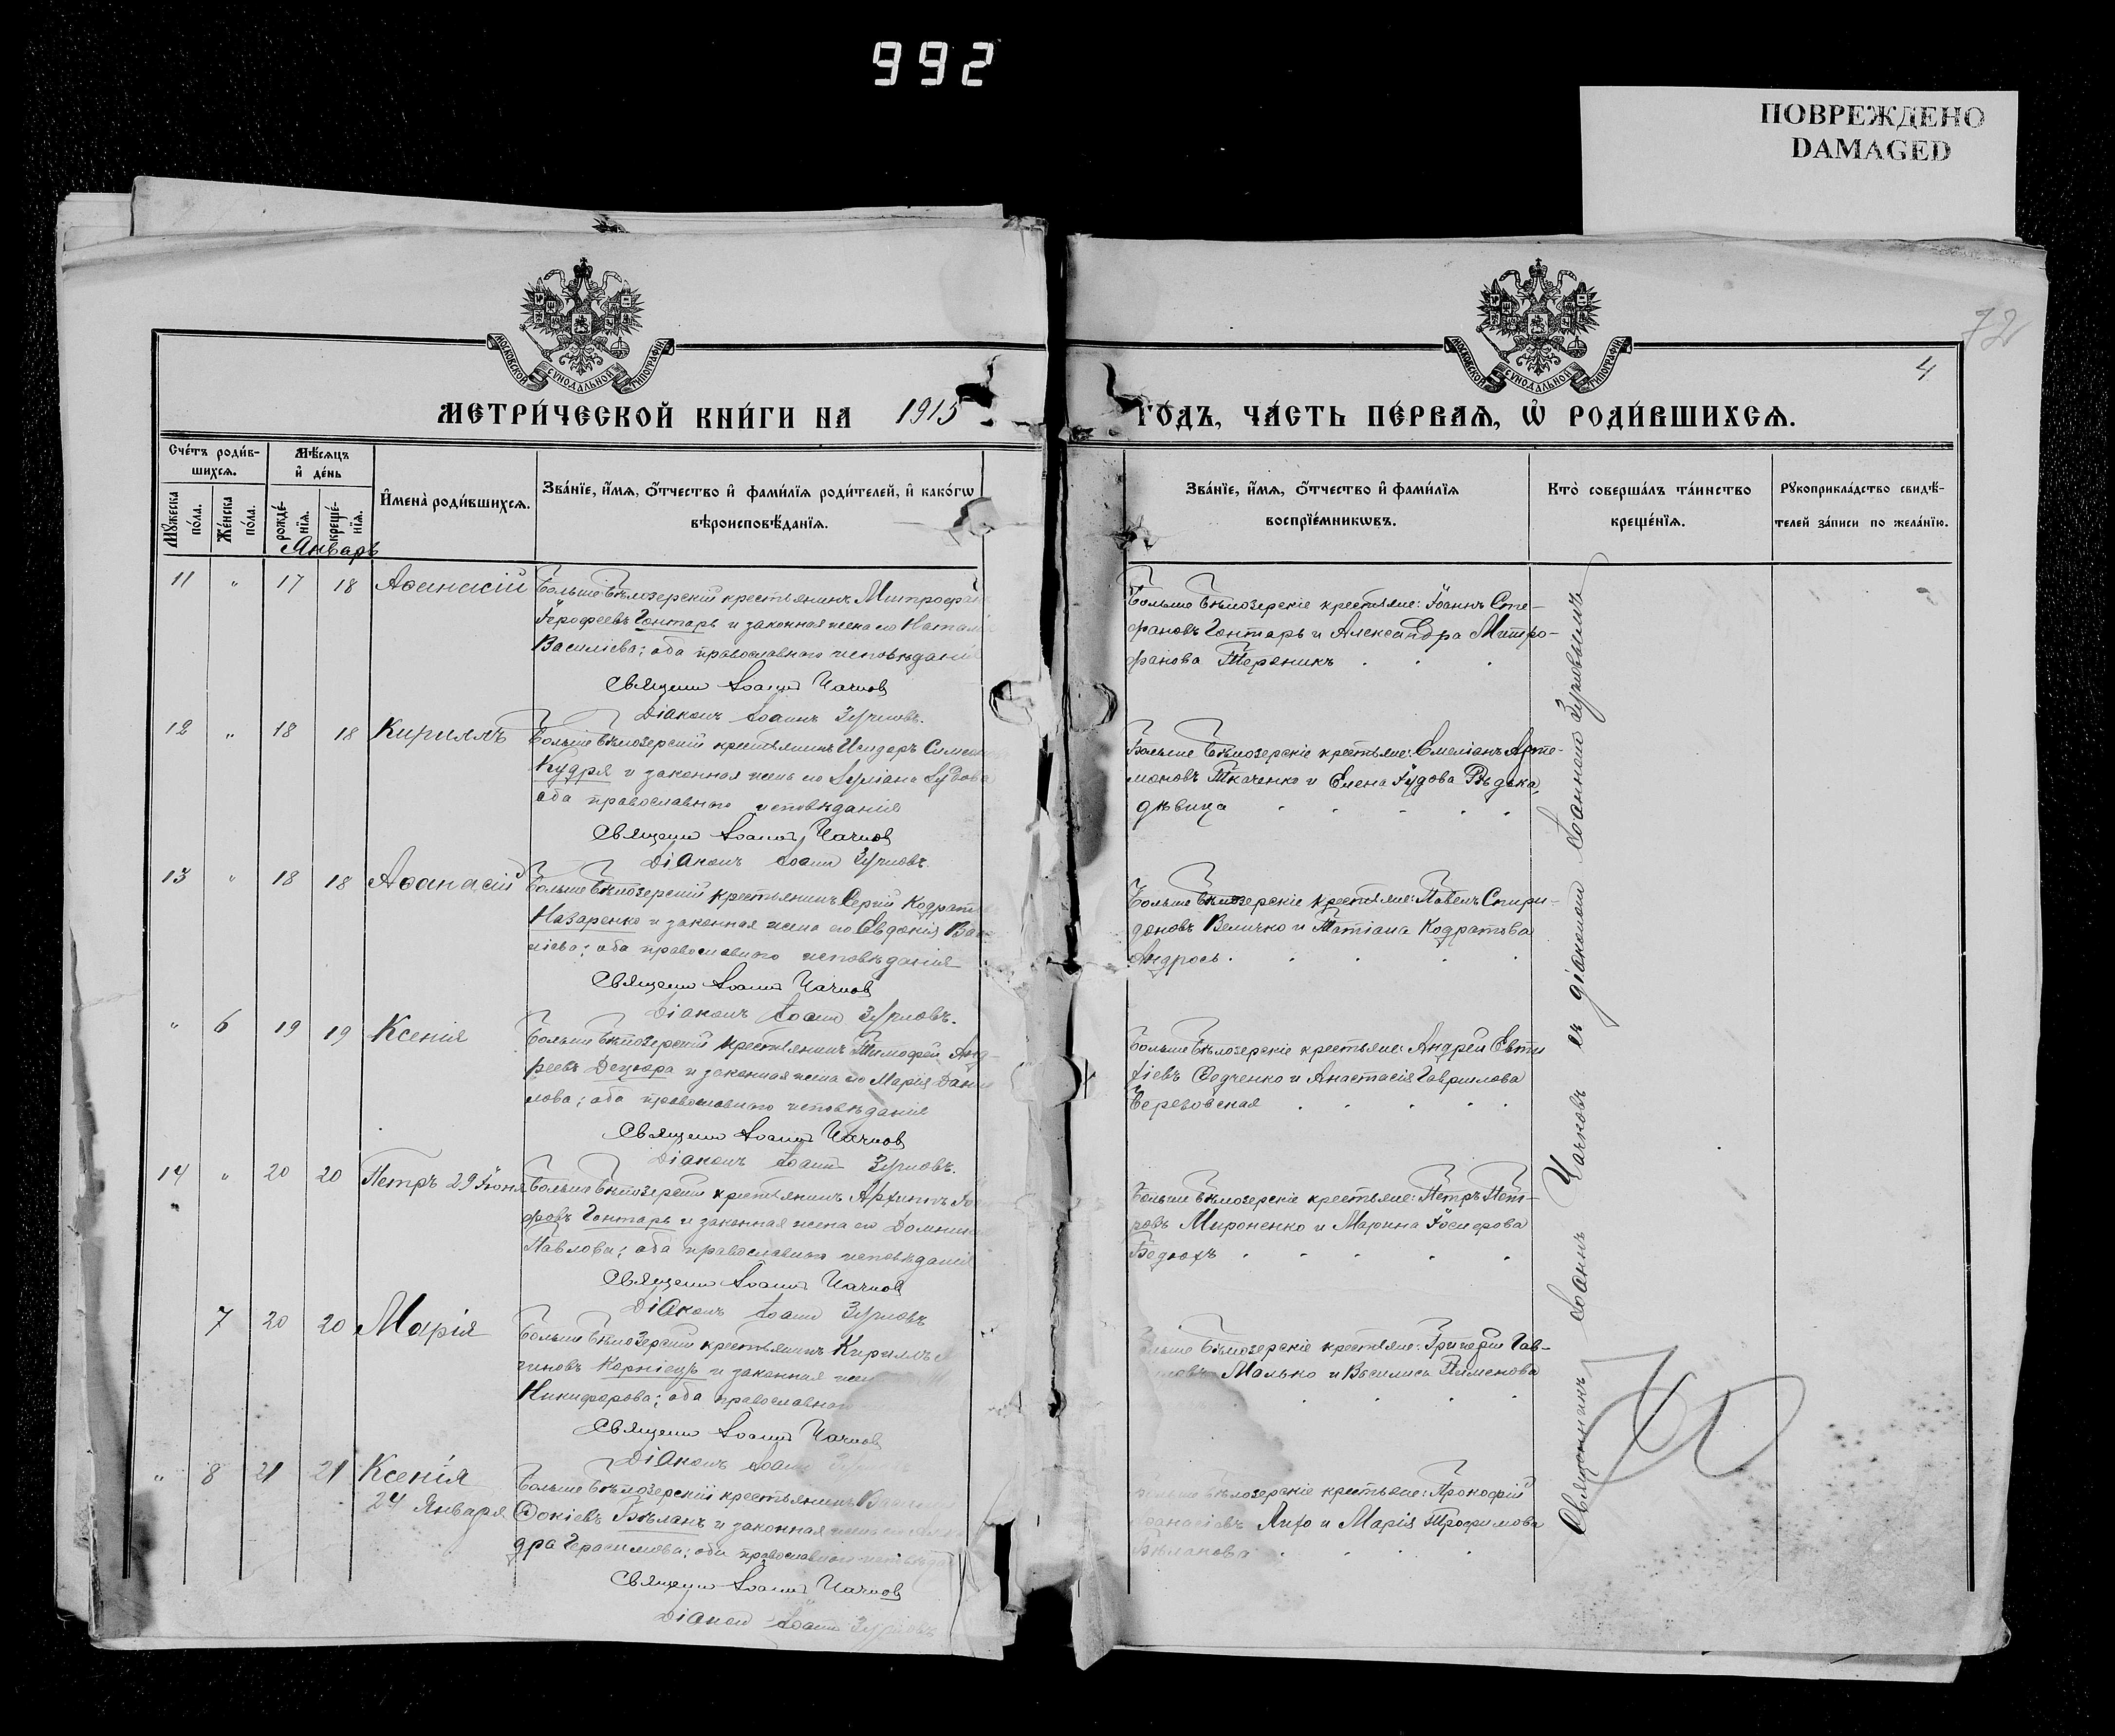 992
ПОВРЕЖДЕНО
DAMAGED
72
4
МОСКОВСКОЙ СУНОДАЛЬНОЙ ТИПОГРАФІИ
МОСКОВСКОЙ СУНОДАЛЬНОЙ ТИПОГРАФІИ
МЕТРИ́ЧЕСКОЙ КНИ́ГИ НА 1915
ГО́ДЪ, ЧА́СТЬ ПЕ́РВАѦ, Ѡ҆ РОДИ́ВШИХСѦ.
Сче́тъ роди́в-
шихсѧ.
Мꙋ́жеска по́ла.
Же́нска по́ла.
Мѣ́сѧцъ
и҆ де́нь
рожде́-
нїѧ.
креще́-
нїѧ.
И҆мена̀ роди́вшихсѧ.
Зва́нїе, и҆́мѧ, ѻ҆́тчество и҆ фами́лїѧ роди́телей, и҆ како́гѡ
вѣроисповѣ́данїѧ.
Зва́нїе, и҆́мѧ, ѻ҆́тчество и҆ фами́лїѧ
воспрїе́мникѡвъ.
Кто̀ соверша́лъ та́инство
креще́нїѧ.
Рꙋкоприкла́дство свидѣ́-
телей за́писи по жела́нїю.
Январь
11 " 17 18 Аѳанасій
Больше Бѣлозерскій крестьянинъ Митрофан
Іерофеевъ Гонтарь и законная жена его Натал
Василіева; оба православнаго исповѣданія
Священн Іоаннъ Чачков
Діаконъ Іоаннъ Зурновъ.
Больше Бѣлозерскіе крестьяне: Іоаннъ Сте-
фановъ Гонтарь и Александра Митро-
фанова
12 " 18 18 Кириллъ
Больше Бѣлозерскій крестьянинъ Исидоръ Симео
Кудря и законная жена его Іуліана Іудова
оба православнаго исповѣданія
Священн Іоаннъ Чачков
Діаконъ Іоаннъ Зурновъ.
Больше Бѣлозерскіе крестьяне: Емеліанъ Арте-
моновъ Ткаченко и Елена Іудова Рѣдька,
дѣвица
13 " 18 18 Аѳанасій
Больше Бѣлозерскій крестьянинъ Сергій Кодрат
Назаренко и законная жена его Евдокія Ва
ліева; оба православнаго исповѣданія
Священн Іоаннъ Чачков
Діаконъ Іоаннъ Зурновъ.
Больше Бѣлозерскіе крестьяне: Павелъ Спири-
доновъ Величко и Татіана Кодратова
Андрось
" 6 19 19 Ксенія
Больше Бѣлозерскій крестьянинъ Тимофей Анд-
реевъ Децюра и законная жена его Марія Дани
лова; оба православнаго исповѣданія
Священн Іоаннъ Чачков
Діаконъ Іоаннъ Зурновъ.
Больше Бѣлозерскіе крестьяне: Андрей Евти
хіевъ Федченко и Анастасія Гавриілова
Березовская
14 " 20 20 Петръ 29 Іюня
Больше Бѣлозерскій крестьянинъ Архиппъ Іо
фовъ Гонтарь и законная жена его Домник
Павлова; оба православнаго исповѣданія
Священн Іоаннъ Чачков
Діаконъ Іоаннъ Зурновъ
Больше Бѣлозерскіе крестьяне: Петръ Пет-
ровъ Мироненко и Марина Іосифова
Бедюхъ
7 20 20 Марія
Больше Бѣлозерскій крестьянинъ Кириллъ
гиновъ Корніецъ и законная жен
Никифорова; оба православнаго
Священн Іоаннъ Чачков
Діаконъ Іоаннъ
Бѣлозерскіе крестьяне: Григорій Гав-
Малько и Василиса Пименова
" 8 21 21 Ксенія
24 Января
Больше Бѣлозерскій крестьянинъ Васил
Фокіевъ Бѣланъ и законная жена его
дра Герасимова; оба православнаго исповѣда
Священн Іоаннъ Чачков
Діакон Іоанн Зурновъ
Бѣлозерскіе крестьяне: Прокофій
и Марія Трофимова
Бѣланова
Священникъ Іоаннъ Чачковъ съ діакономъ Іоанномъ Зурновымъ